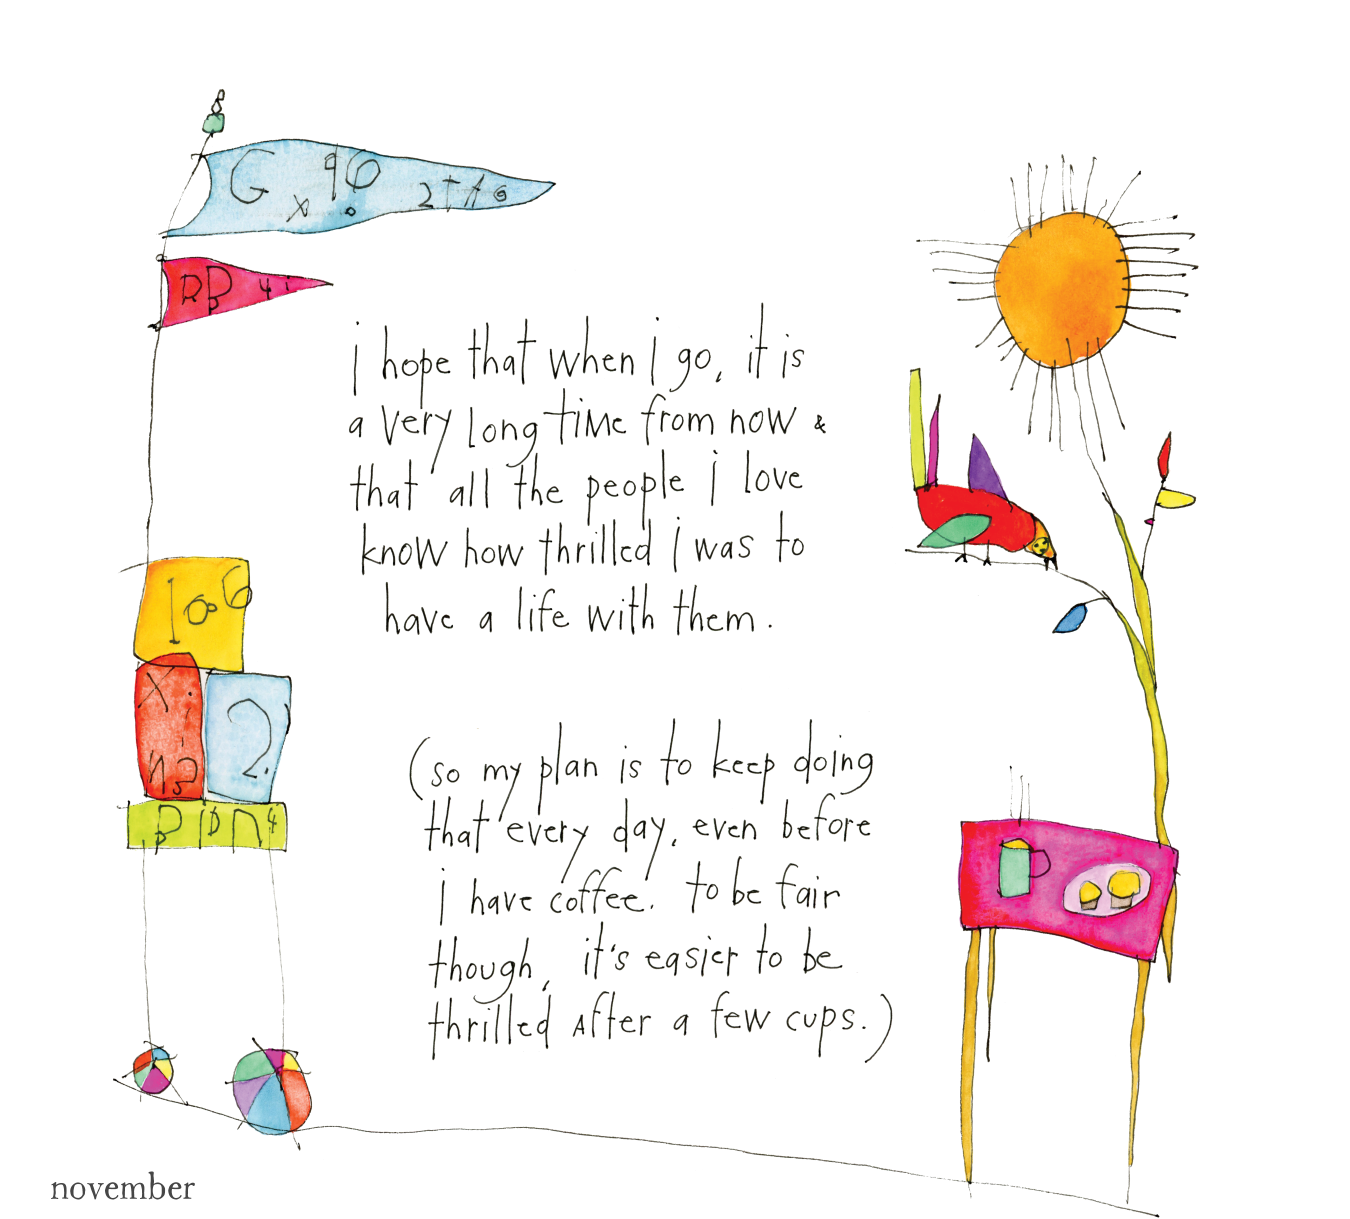 G x 90 2 T A G
i hope that when i go, it is
a very long time from now &
that all the people i love
know how thrilled i was to
have a life with them.
2.
(so my plan is to keep doing
that every day, even before
i have coffee. to be fair
though, it's easier to be
thrilled after a few cups.)
november